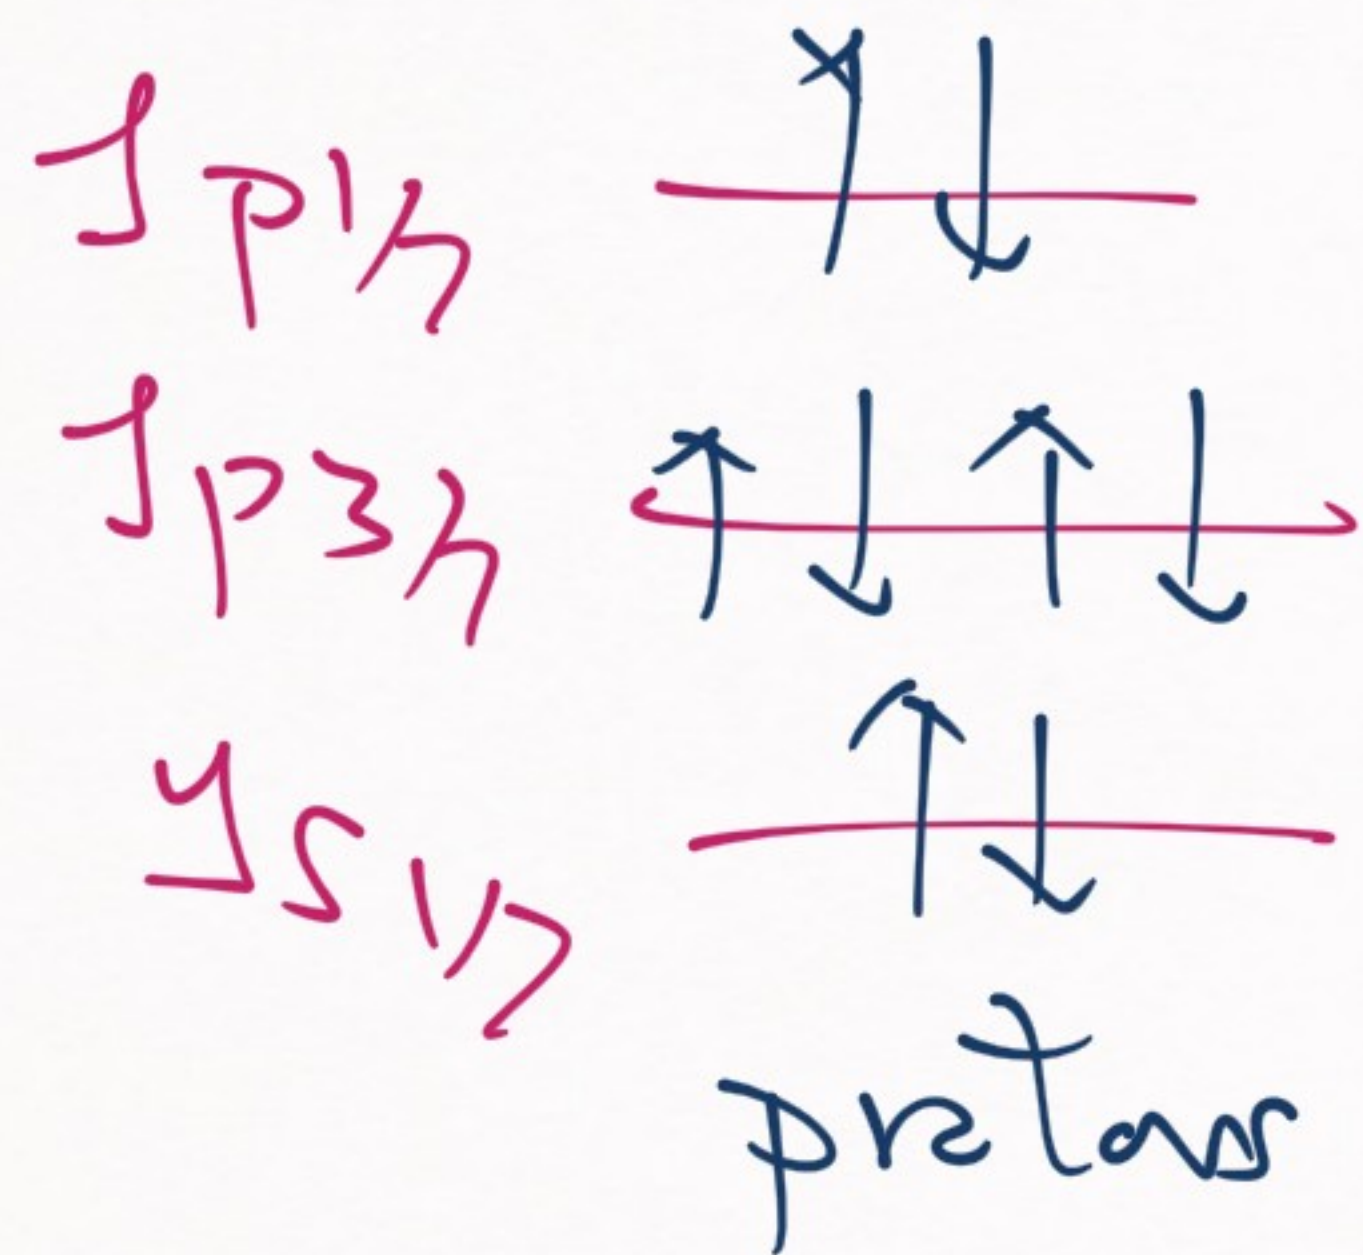 1p1/2
1p3/2
1s1/2
protons